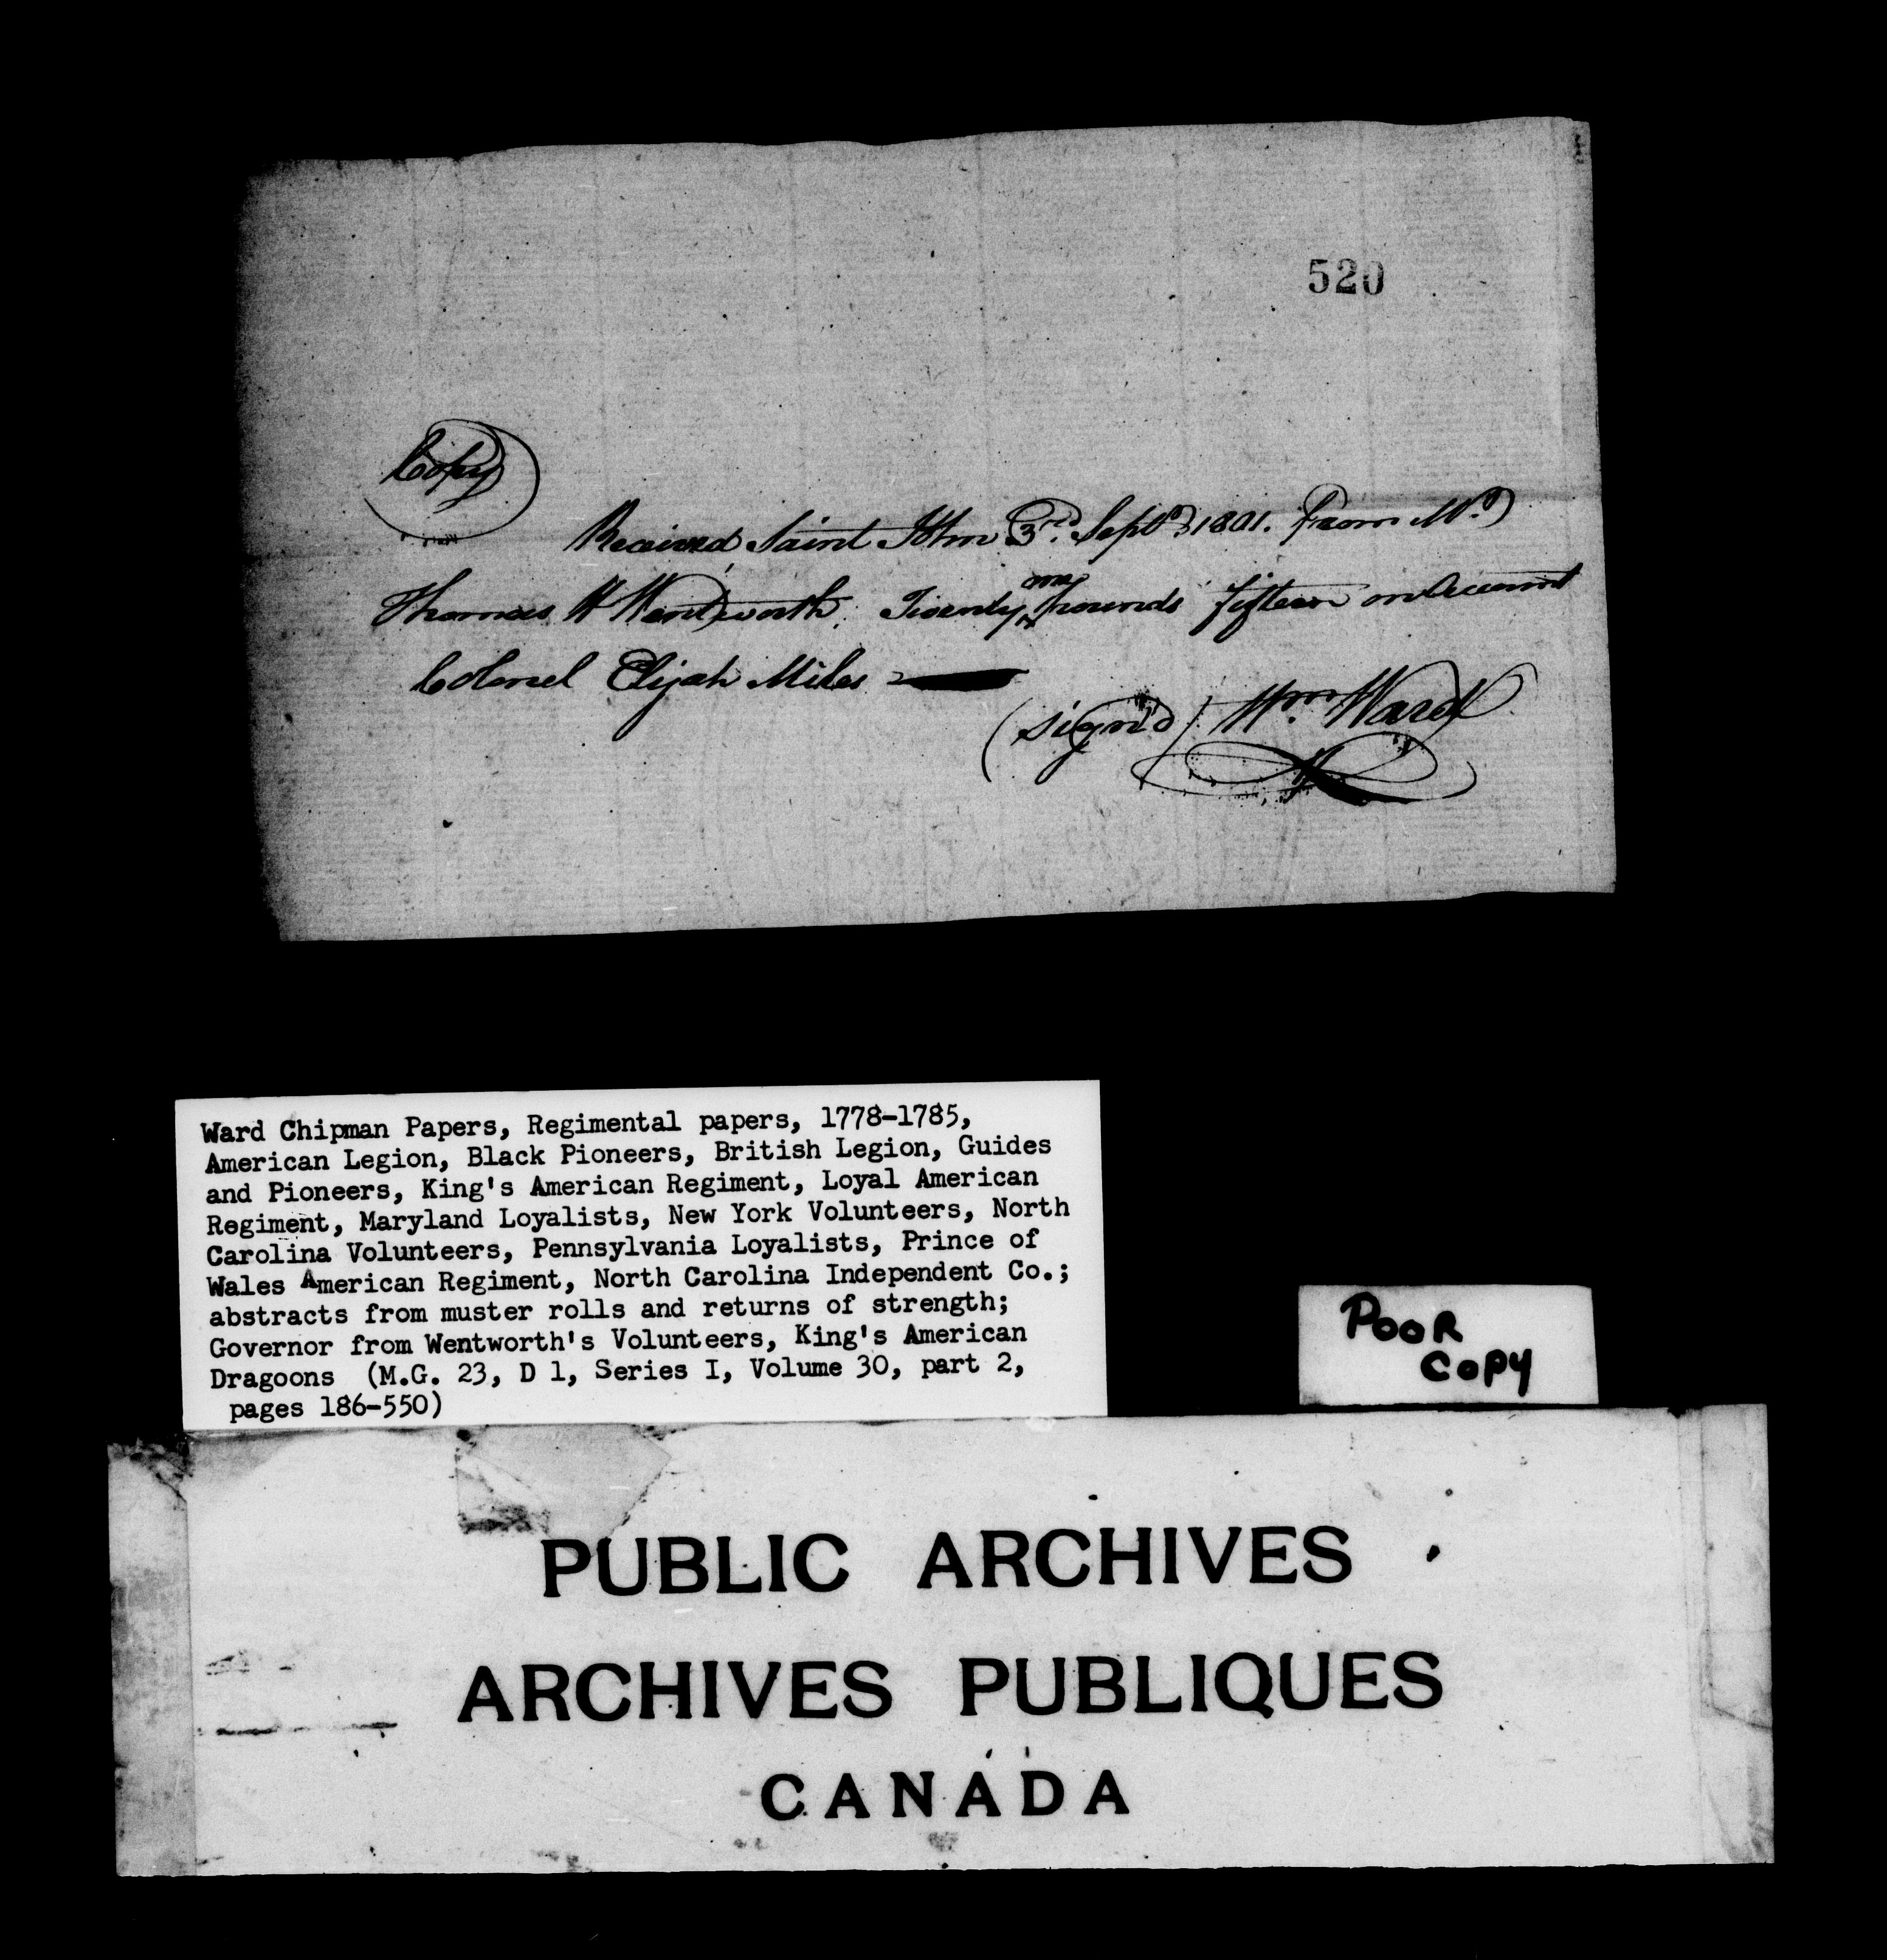 520
Copy
Received Saint John 3rd Septr 1801. From Mr
Thomas H Wentworth, Twenty one pounds fifteen on Account
Colonel Elijah Miles
(sign'd) Wm. Ward
Ward Chipman Papers, Regimental papers, 1778-1785,
American Legion, Black Pioneers, British Legion, Guides
and Pioneers, King's American Regiment, Loyal American
Regiment, Maryland Loyalists, New York Volunteers, North
Carolina Volunteers, Pennsylvania Loyalists, Prince of
Wales American Regiment, North Carolina Independent Co.;
abstracts from muster rolls and returns of strength;
Governor from Wentworth's Volunteers, King's American
Dragoons (M.G. 23, D 1, Series I, Volume 30, part 2,
pages 186-550)
POOR
COPY
PUBLIC ARCHIVES
ARCHIVES PUBLIQUES
CANADA